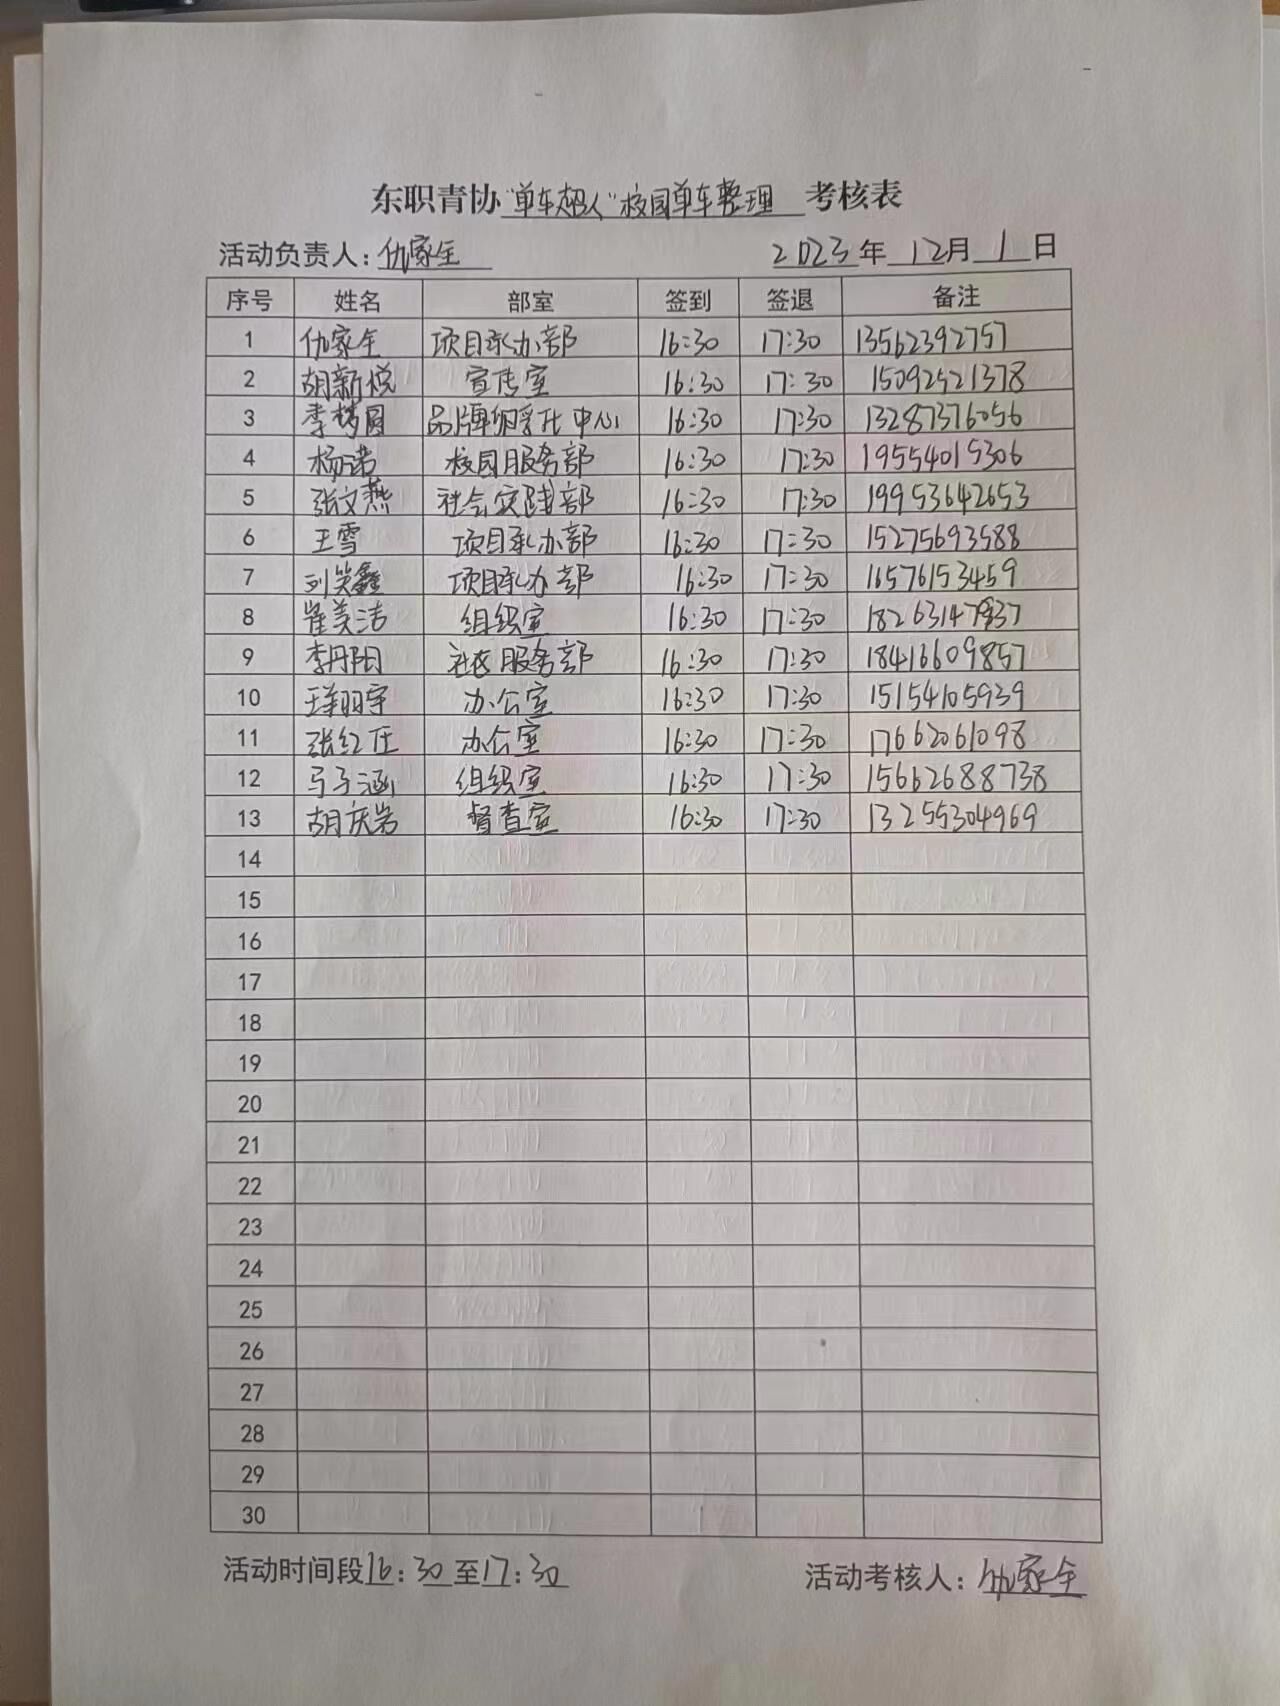 东职青协“单车超人”校园单车整理 考核表
活动负责人：仇家全 2023年 12月 1日
序号 姓名 部室 签到 签退 备注
1 仇家全 项目承办部 16:30 17:30 13562392757
2 胡新悦 宣传室 16:30 17:30 15092521378
3 李梦圆 品牌孵化中心 16:30 17:30 13287376056
4 杨诺 校园服务部 16:30 17:30 19554015306
5 张文燕 社会实践部 16:30 17:30 19953642653
6 王雪 项目承办部 16:30 17:30 15275693588
7 刘笑鑫 项目承办部 16:30 17:30 16576153459
8 崔美洁 组织室 16:30 17:30
9 李丹阳 社区服务部 16:30 17:30 18416609857
10 王翔宇 办公室 16:30 17:30 15154105939
11 张红 办公室 16:30 17:30 17662061098
12 马子涵 组织室 16:30 17:30 15662688738
13 胡庆岩 督查室 16:30 17:30 13255304969
14
15
16
17
18
19
20
21
22
23
24
25
26
27
28
29
30
活动时间段16:30至17:30 活动考核人：仇家全